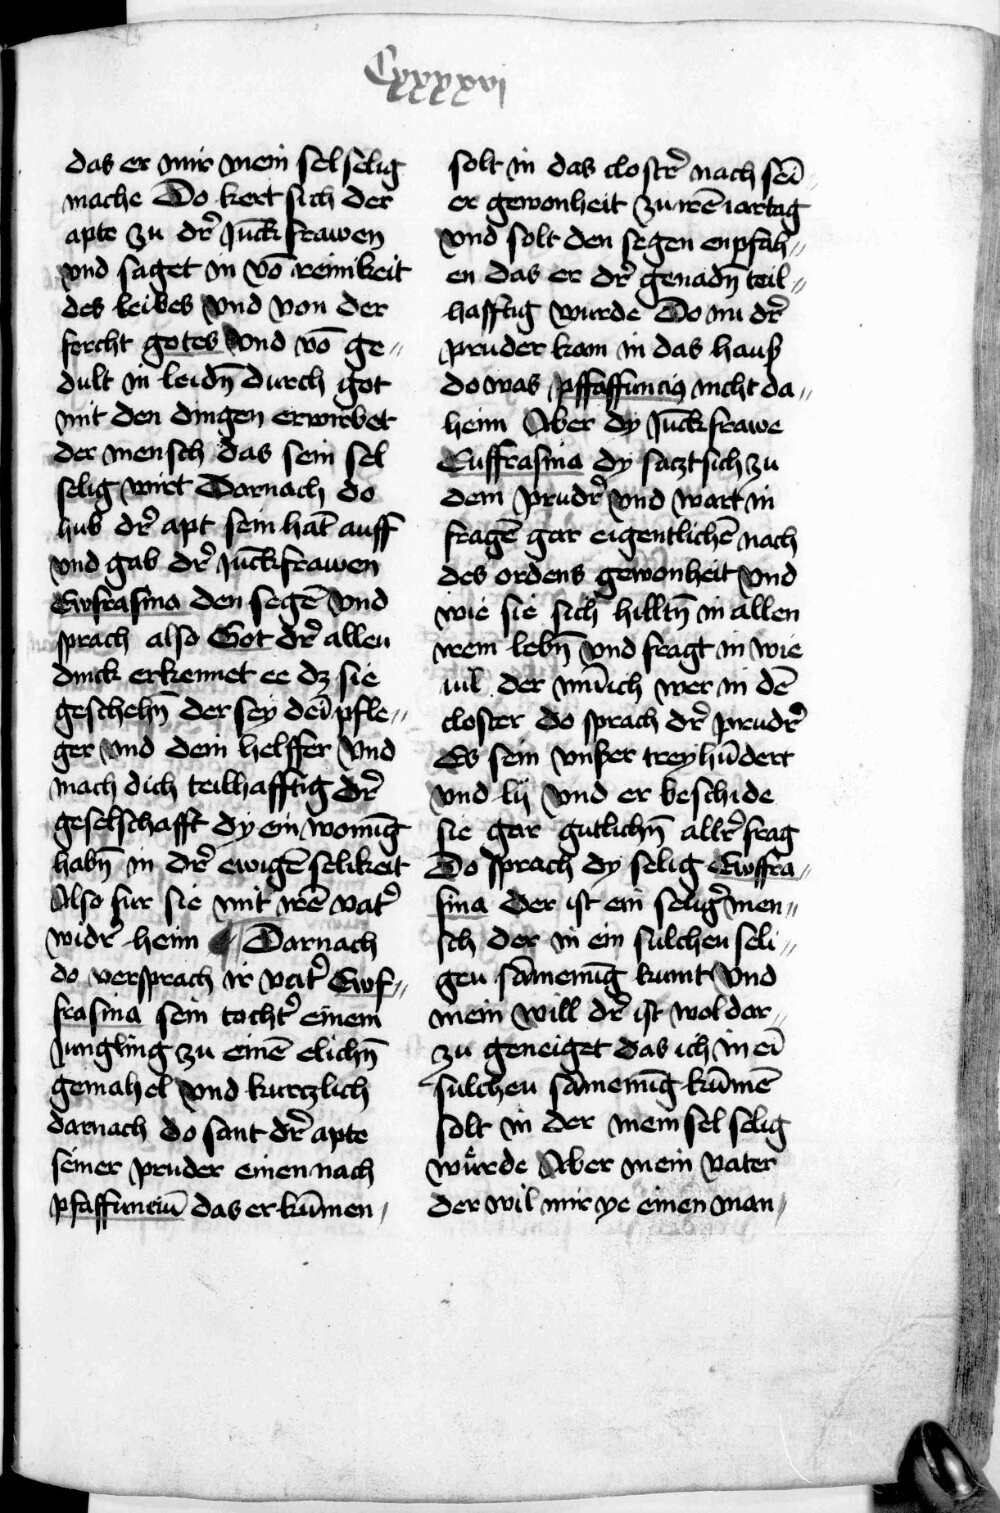 Cxxxxvi
das er mir mein sel selig
mache Do kert sich der
apte zu dr̄ Jūckfrawen
vnd saget in vō reinikeit
des leibes vnd von der
forcht gotes vnd vō ge„
dult in leidn̄ durch got
mit den dingen erwirbet
der mensch das sein sel
selig wirt Darnach do
hub dr̄ apt sein hāt auff
vnd gab dr̄ Jūckfrawen
Ewfrasina den segē vnd
sprach also Got dr̄ alleu
dinck erkennet ee dz sie
geschehn̄ der sey dei̅ pfle„
ger vnd dein helffer vnd
mach dich teilhafftig dr̄
geselschafft dy ein wonu̅g
habn̄ in dr̄ ewigē selikeit
Also fur sie mit irē vat̄
widr̄ heim Darnach
do versprach ir vat̄ Ewf„
frasina sein tocht̄ einem
Jungling zu einē elichn̄
gemahel vnd kurtzlich
darnach do sant dr̄ apte
seiner pruder einen nach
pfaffunciū das er kūmen
solt in das clostr̄ nach sei̅
er gewonheit zu irē iartag
vnd solt den segen enpfah„
en das er dr̄ genadn̄ teil„
hafftig wurde Do nu dr̄
pruder kom in das hauß
do was pffaffuncius nicht da„
heim Aber dy Jūckfrawe
Euffrasina dy saczt sich zu
dem prudr̄ vnd wart in
fragē gar eigentlichē nach
des ordens gewonheit vnd
wie sie sich hilltn̄ in allen
irem lebn̄ vnd fragt in wie
uil der mūich wer in dē
closter do sprach dr̄ prudr̄
Es sein vnßer trey hūdert
vnd lij vnd er beschide
sie gar gutlichn̄ allr̄ frag
Do sprach dy selig Ewffra„
sina der ist ein selig̅ men„
sch der in ein sulcheu seli„
geu samenūg kumt vnd
mein will dr̄ ist wol dar„
zu geneiget das ich in ei̅
sulcheu samenūg kūmē
solt in der mein sel selig
würde Aber mein vater
der wil mir ye einen man